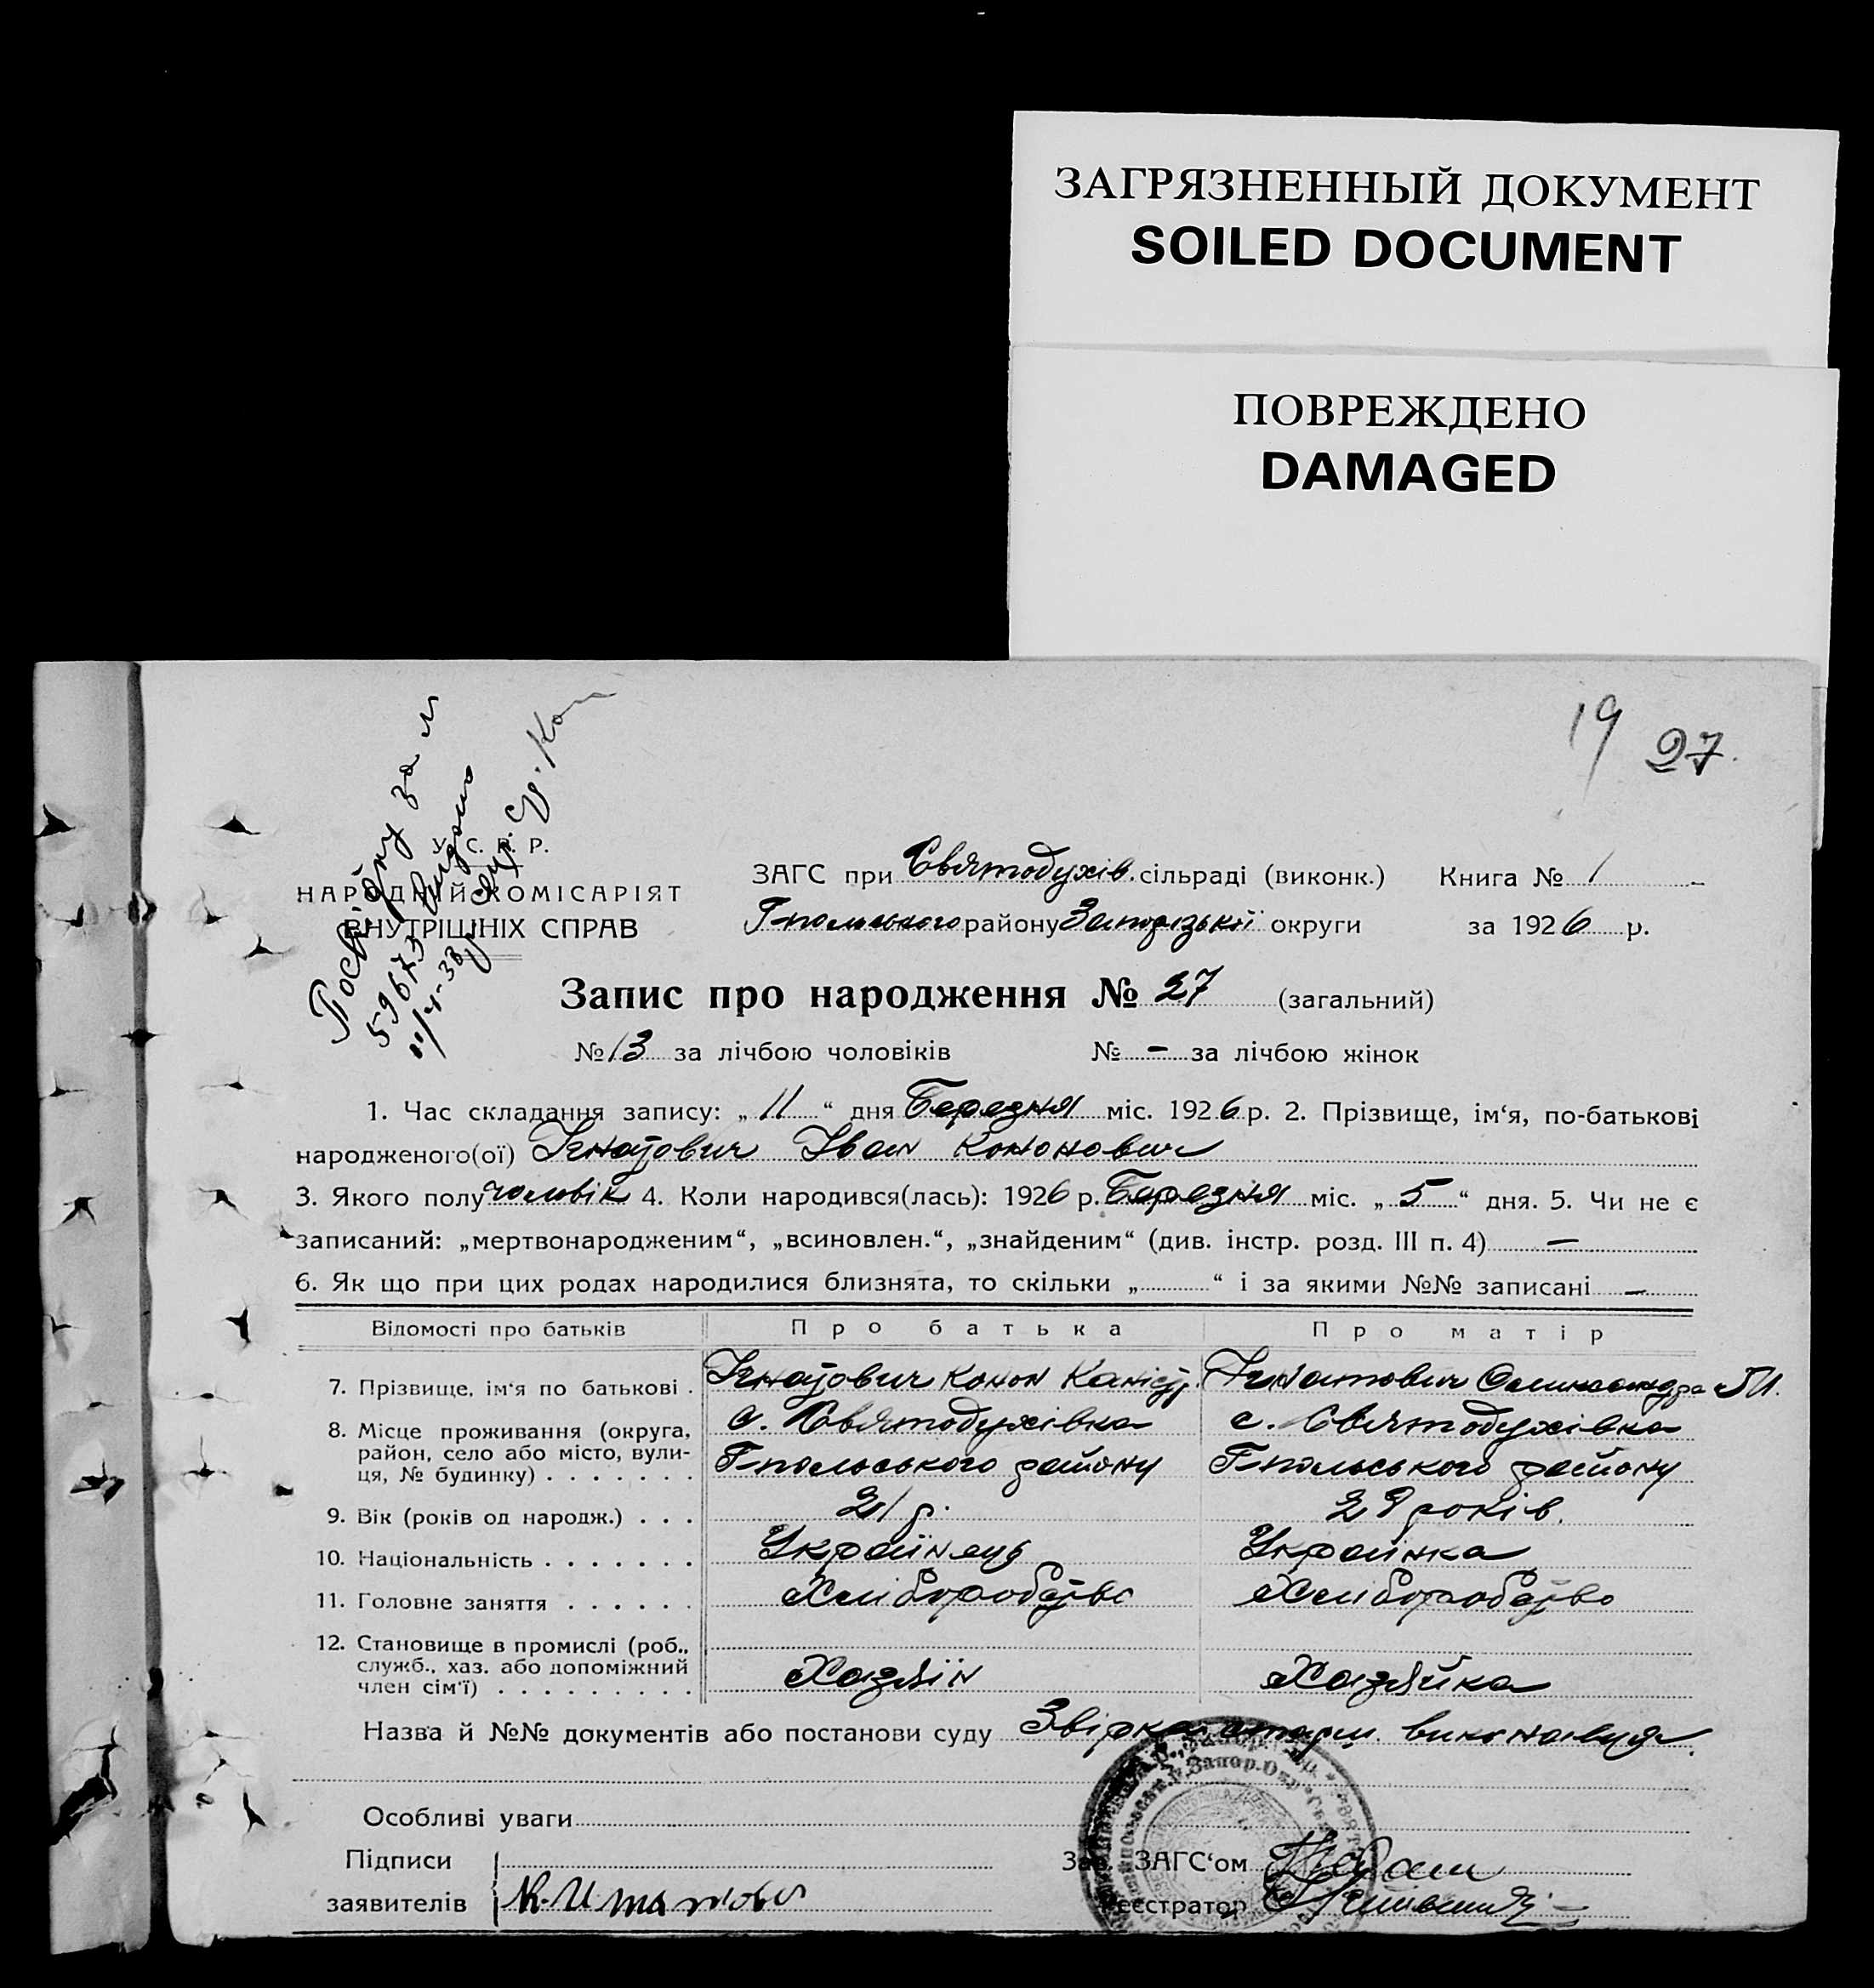 ЗАГРЯЗНЕННЫЙ ДОКУМЕНТ
SOILED DOCUMENT
ПОВРЕЖДЕНО
DAMAGED
19
27.
Посвідку за
59673
11/4-33
У. С. Р. Р.
НАРОДНІЙ КОМІСАРІЯТ
ВНУТРІШНІХ СПРАВ
ЗАГС при Святодухів. сільраді (виконк.) Книга № 1
Г-польського району Запорізької округи за 1926 р.
Запис про народження № 27 (загальний)
№ 13 за лічбою чоловіків № — за лічбою жінок
1. Час складання запису: „ 11 “ дня Березня міс. 1926 р. 2. Прізвище, ім‘я, по-батькові
народженого(ої) Ігнатович Іван Кононович
3. Якого полу чоловік 4. Коли народився(лась): 1926 р. Березня міс. „ 5 “ дня. 5. Чи не є
записаний: „мертвонародженим“, „всиновлен.“, „знайденим“ (див. інстр. розд. III п. 4) —
6. Як що при цих родах народилися близнята, то скільки „ “ і за якими №№ записані —
Відомості про батьків Про батька Про матір
7. Прізвище, ім‘я по батькові . Ігнатович Конон Ігнатович Олександра
8. Місце проживання (округа, с. Святодухівка с. Святодухівка
район, село або місто, вули-
ця, № будинку) . . . . . . . Г-польського району Г-польського району
9. Вік (років од народж.) . . . 21 р. 29 років.
10. Національність . . . . . . . Українець Українка
11. Головне заняття . . . . . . Хліборобство Хліборобство
12. Становище в промислі (роб.,
служб., хаз. або допоміжний
член сім‘ї) . . . . . . . . . Хазяїн Хазяйка
Назва й №№ документів або постанови суду Звірка виконавця.
Особливі уваги
Підписи Зав. ЗАГС‘ом
заявителів Реєстратор